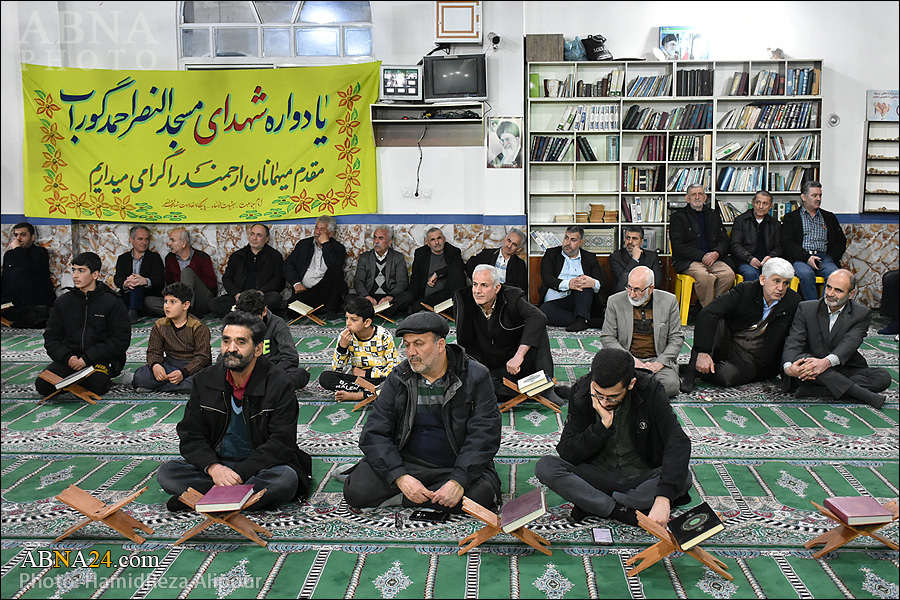 ABNA
PHOTO
یادواره شهدای مسجد النصر احمدگوراب
مقدم میهمانان ارجمند را گرامی میداریم
ABNA24.com
Photo: Hamidreza Alipour